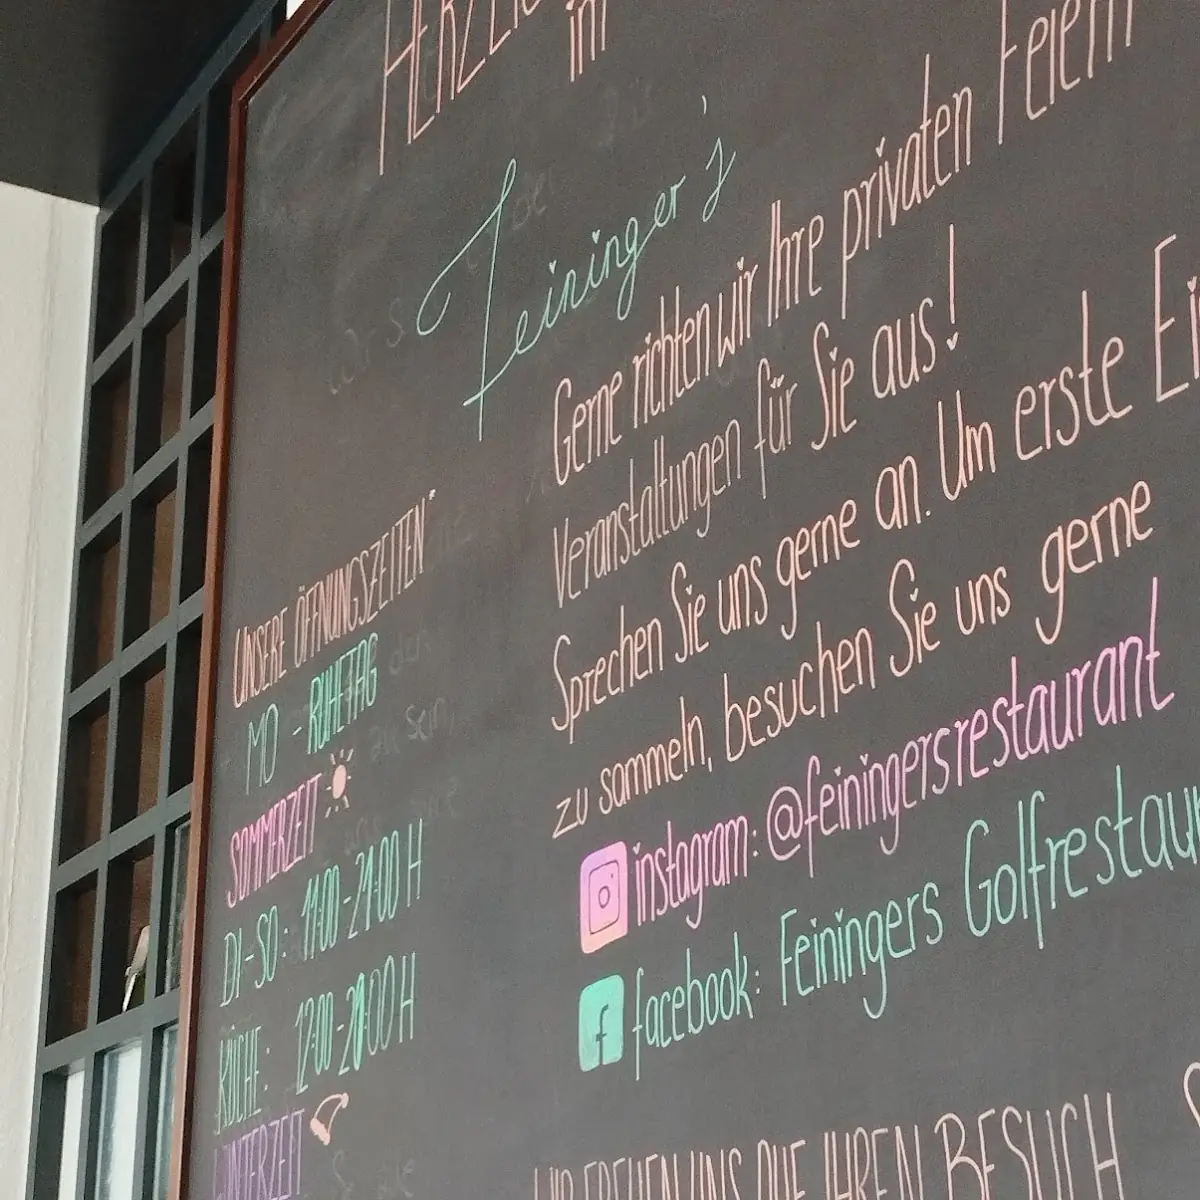 im
Feininger's
Gerne richten wir Ihre privaten Feiern
Veranstaltungen für Sie aus!
Sprechen Sie uns gerne an. Um erste
zu sammeln, besuchen Sie uns gerne
instagram: @feiningersrestaurant
facebook: Feiningers
WIR FREUEN UNS AUF IHREN BESUCH
UNSERE ÖFFNUNGSZEITEN
MO - RUHETAG
SOMMERZEIT
DI-SO: 11:00-21:00 H
KÜCHE: 12:00-20:00 H
WINTERZEIT